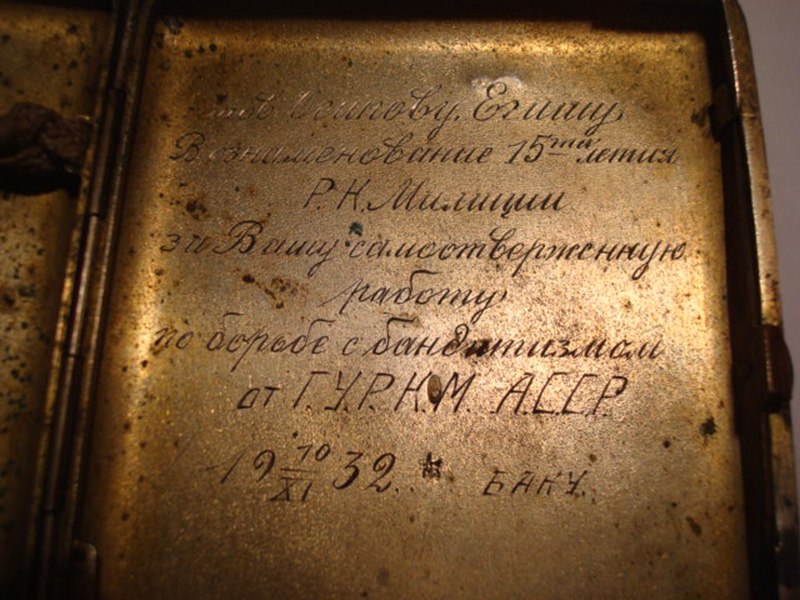 тов. Осипову. Егишу
В ознаменование 15ти летия
Р.К. Милиции
за Вашу самоотверженную
работу
по борьбе с бандитизмом
от Г.У.Р.К.М. А.С.С.Р.
19 10/XI 32. БАКУ.